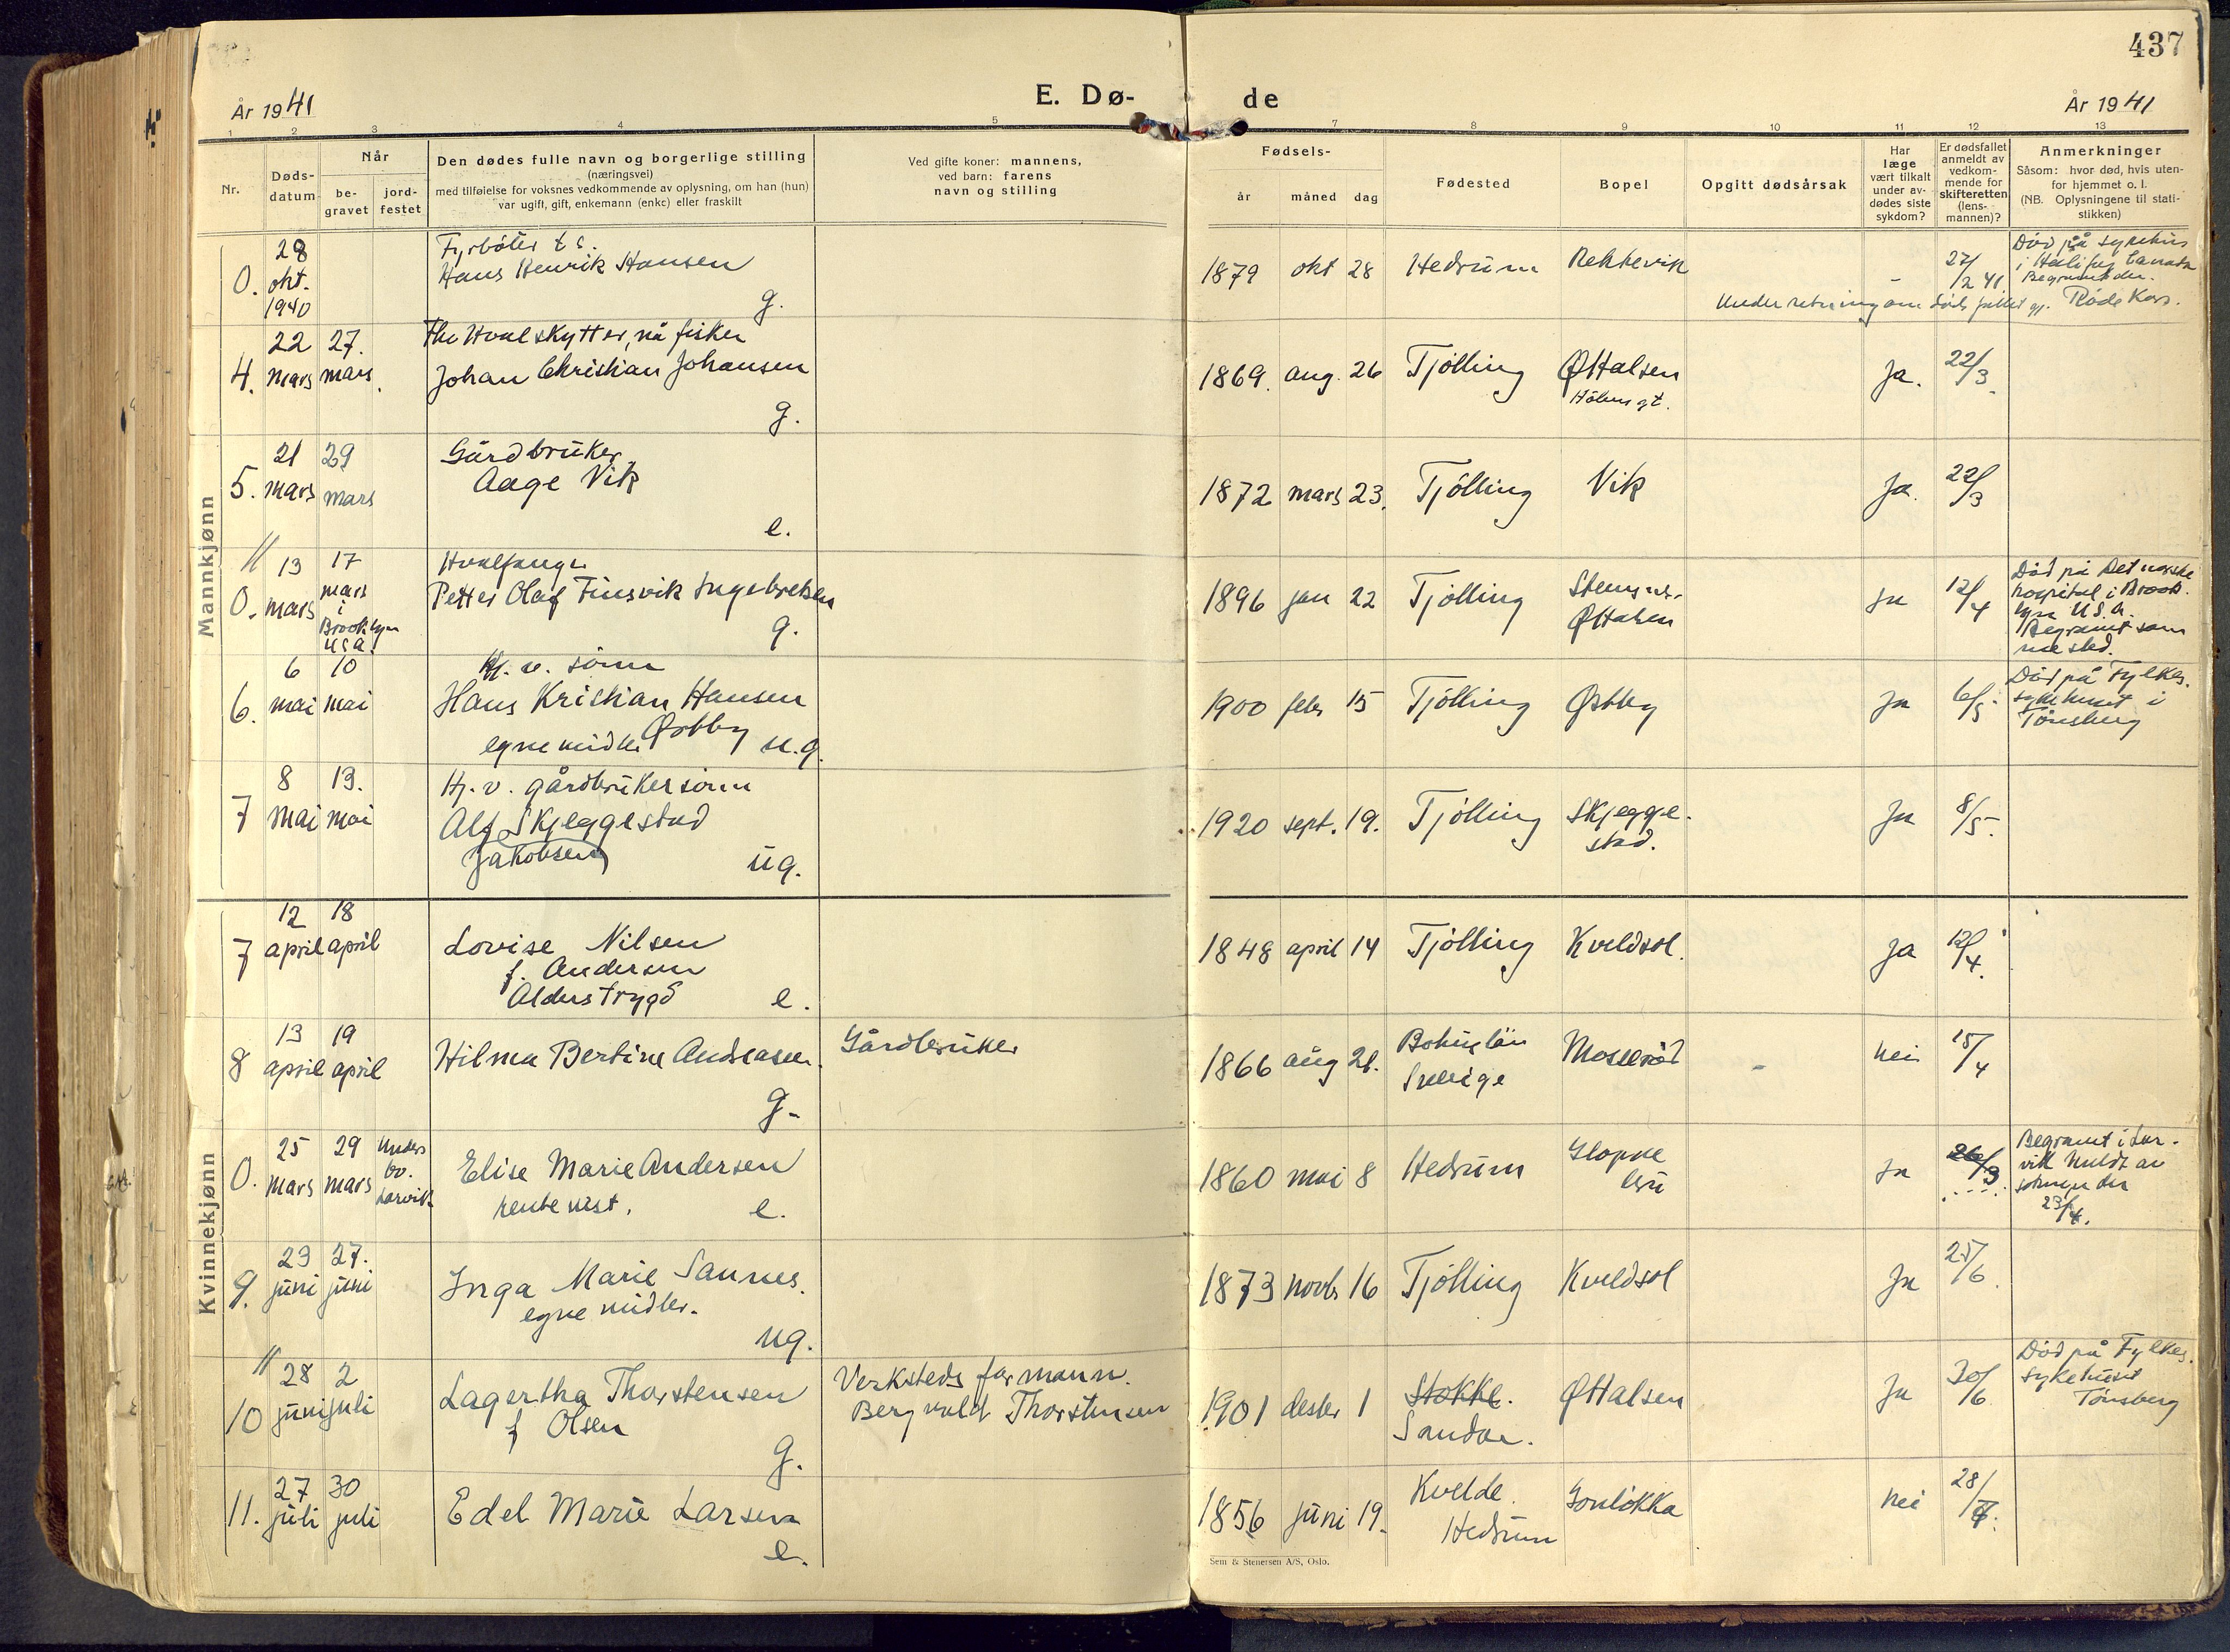 437
År 1941
E. Dø-
de
År 1941
1 2 3 4 5 7 8 9 10 11 12 13
Nr.
Døds-
datum
Når
be-
gravet
jord-
festet
Den dødes fulle navn og borgerlige stilling
(næringsvei)
med tilføielse for voksnes vedkommende av oplysning, om han (hun)
var ugift, gift, enkemann (enke) eller fraskilt
Ved gifte koner: mannens,
ved barn: farens
navn og stilling
Fødsels-
år måned dag
Fødested
Bopel
Opgitt dødsårsak
Har
læge
vært tilkalt
under av-
dødes siste
sykdom?
Er dødsfallet
anmeldt av
vedkom-
mende for
skifteretten
(lens-
mannen)?
Anmerkninger
Såsom: hvor død, hvis uten-
for hjemmet o. l.
(NB. Oplysningene til stati-
stikken)
Mannkjønn
0.
28
okt.
1940
Fyrbøter
Hans Henrik Hansen
g.
1879 okt 28
Hedrum
Rekkevik
-
27/2 41
Død på sykehus
i Halifax Canada
Begravet der.
Underretning om dødsfallet gj. Røde Kors.
4.
22
mars
27.
mars
Hvalskytter, nå fisker
Johan Christian Johansen
g.
1869. aug. 26
Tjølling
Ø Halsen
Ja.
22/3
5.
21
mars
29
mars
Gårdbruker
Aage Vik
e.
1872 mars 23.
Tjølling
Vik
Ja.
22/3
0.
13
mars
17
mars
i
Brooklyn
USA.
Hvalfanger
Petter Olaf Finsvik Ingebretsen
g.
1896 jan 22
Tjølling
Ø Halsen
Ja
12/4
Død på Det norske
hospital i Brook-
lyn U.S.A.
Begravet samme sted.
6.
6
mai
10
mai
sønn
Hans Kristian Hansen
Østby
egne midler
u.g.
1900 febr 15
Tjølling
Østby
Ja
6/5
Død på Fylkes-
sykehuset i
Tønsberg
7
8
mai
13.
mai
Hj. v. gårdbrukersønn
Alf Skjeggestad
Jakobsen
ug.
1920 sept. 19.
Tjølling
Skjegge-
stad.
Ja
8/5.
Kvinnekjønn
7
12
april
18
april
Lovise Nilsen
f. Andersen
Alderstrygd
e.
1848 april 14
Tjølling
Kveldsol.
Ja
12/4.
8
13
april
19
april
Hilma Bertine Andreasen.
g.
Gårdbruker
1866 aug 21.
Bohuslän
Sverige
Moselrød
-
Nei
15/4
0.
25
mars
29
mars
Larvik
Elise Marie Andersen
rentenist.
e.
1860 mai 8
Hedrum
Gloppe
bru
Ja
26/3
Begravet i Lar-
vik meldt av
23/4.
9.
23
juni
27.
juni
Inga Marie Sannes.
egne midler.
ug.
1873 novbr 16
Tjølling
Kveldsol
Ja
25/6.
10
28
juni
2
juli
Lagertha Thorstensen
f Olsen
g.
Verksteds formann.
Bergvald Thorstensen
1901 desbr 1
Stokke.
Sandar.
Ø Halsen
Ja
30/6
Død på Fylkes-
sykehuset
Tønsberg
11.
27
juli
30
juli
Edel Marie Larsen
e.
1856 juni 19.
Kvelde.
Hedrum
Gonløkka
Nei
28/7.
Sem & Stenersen A/S, Oslo.